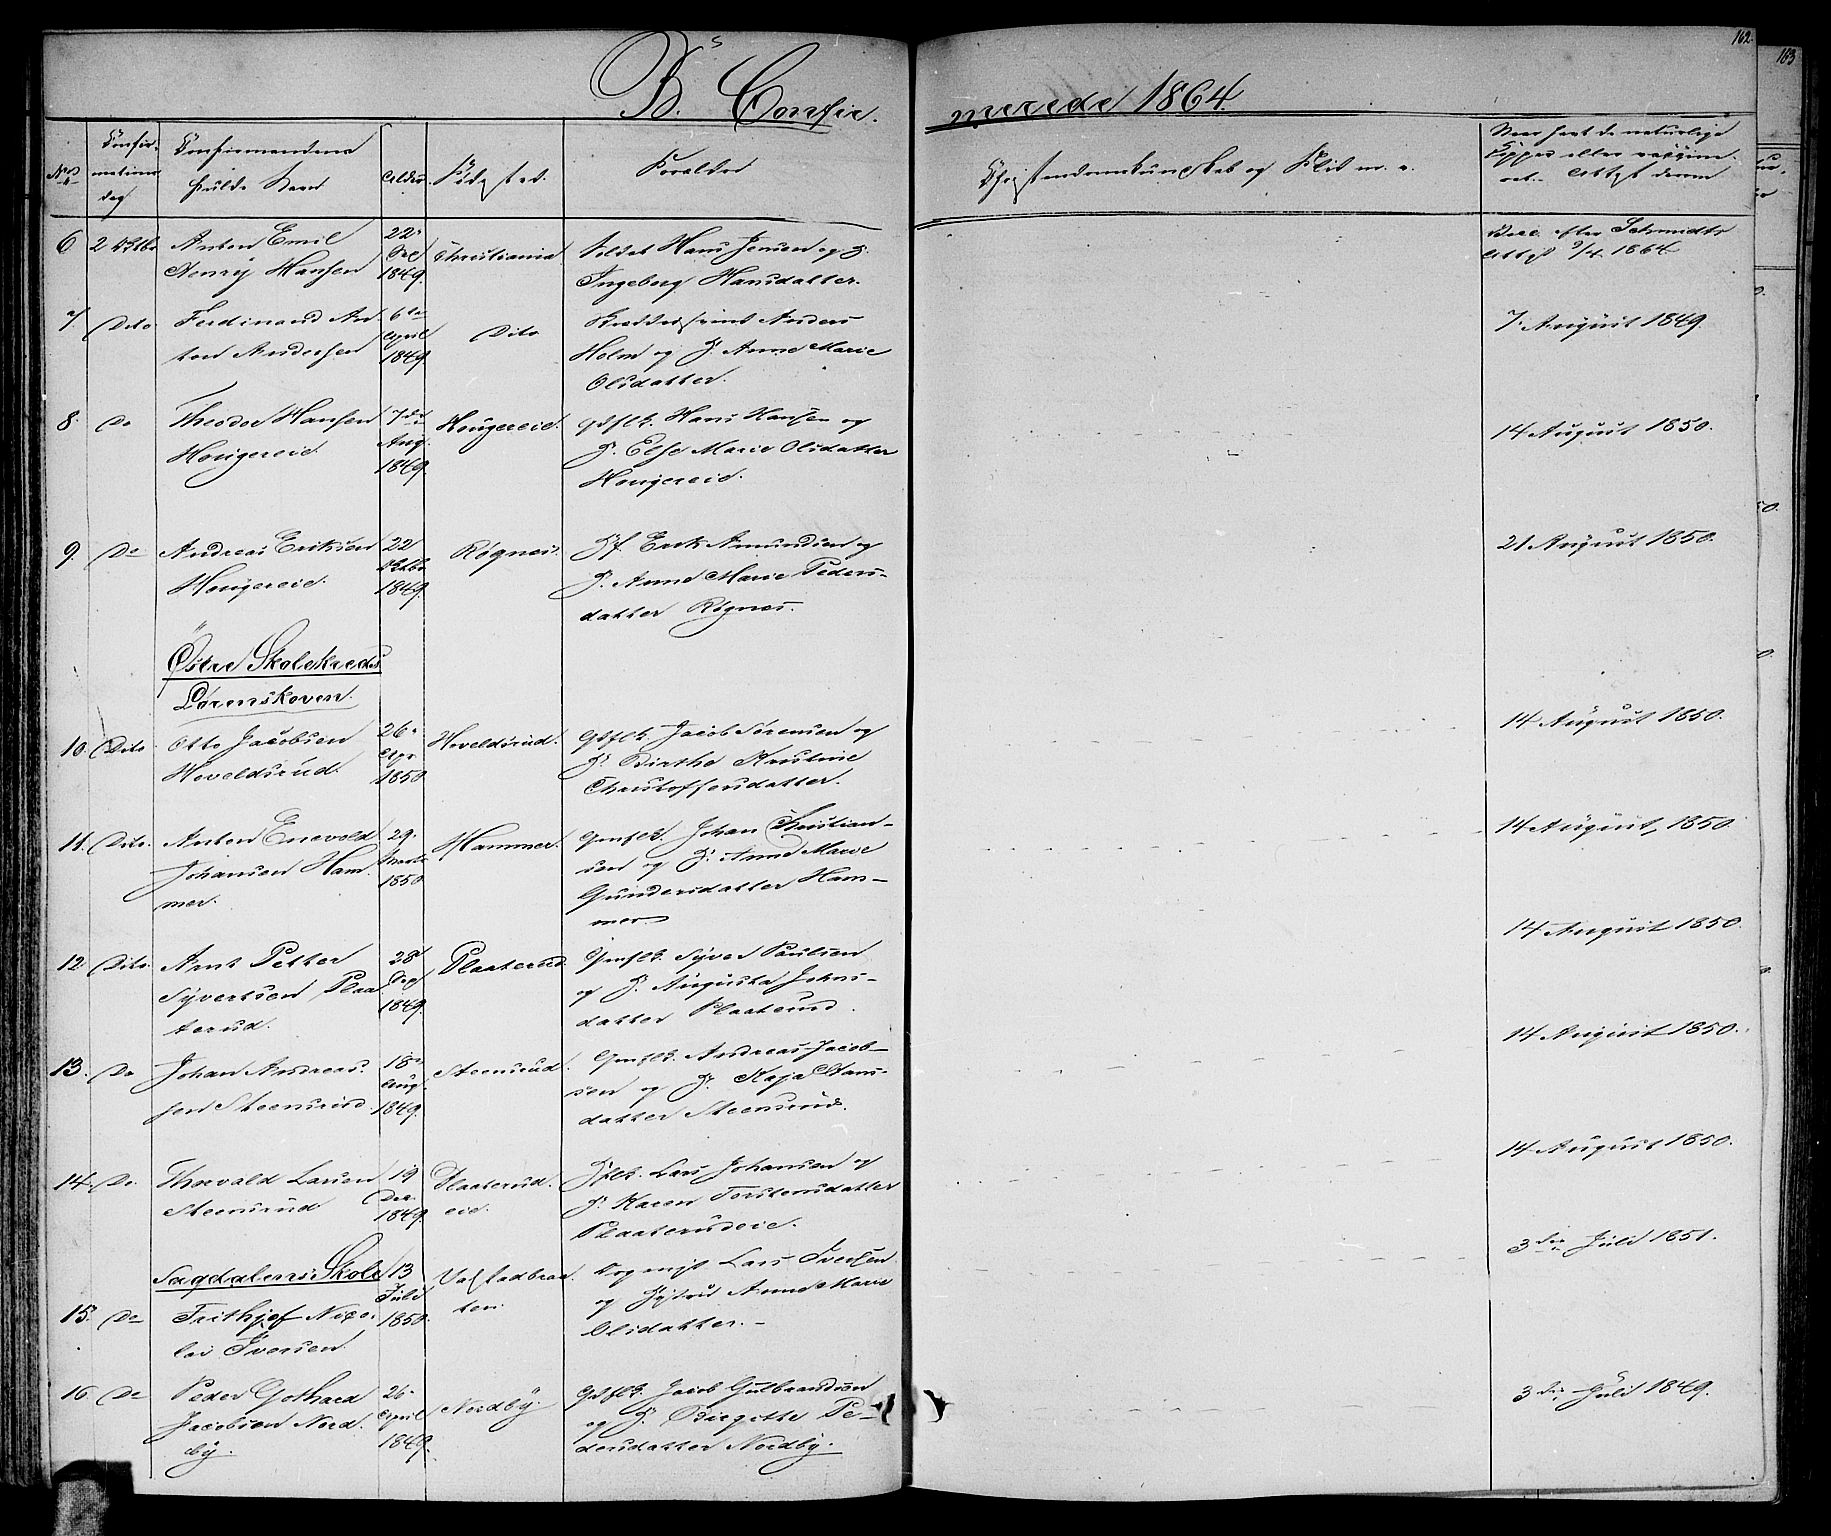 162.
163
B. Confir-
merede 1864.
No
Confir-
mations
dag
Confirmandens
fulde Navn
Alder
Fødested.
Forældre
Christendomskundskab og Flid m. v.
Naar havt de naturlige
Kopper eller vaccine-
ret. Attest derom
6
2 Octbr
Anton Emil
Henry Hansen
22
1849.
Christiania
Soldat Hans Jensen og
Ingeborg Hansdatter.
Vacc. efter Schmidts
Attest 9/4 1864
7
Dito
Ferdinand An
ton Andersen
6te
April
1849.
Dito
Anders
Holm og Anne Marie
Olsdatter.
7. August 1849
8.
Do
Theodor Hansen
Hougereie.
7de
Aug.
1849.
Hougereie.
Hans Hansen og
Else Marie Olsdatter
Hougereie.
14 August 1850.
9.
Do
Andreas Eriksen
Hougereie.
22
Octbr
1849.
Røgnes.
Erik Amundsen og
Anne Marie Peders-
datter Røgnes.
21 August 1850.
Østre Skolekreds
Lørenskoven.
10.
Dito
Otto Jacobsen
Hoveldsrud.
26
Apr
1850
Hoveldsrud.
Gdflk. Jacob Sørensen og
Birthe Kristine
Christoffersdatter.
14 August 1850.
11.
Dito.
Anton Enevold
Johansen Ham-
mer.
29.
Marts
1850
Hammer.
Gmflk. Johan Christian-
sen og Anne Marie
Gundersdatter Ham-
mer.
14 August 1850.
12.
Dito.
Arnt Petter
Syvertsen Plaa
terud.
28
Dec
1849.
Plaaterud.
Gmflk. Syver Paulsen
og Augusta Johns-
datter Plaaterud.
14 August 1850.
13.
Do
Johan Andreas-
sen Steensrud.
18
Aug.
1849.
Steensrud.
Gmflk. Andreas Jacob-
sen og Kaja Hans-
datter Steensrud.
14 August 1850.
14.
Do.
Thorvald Larsen
Steensrud
19
Dec.
1849.
Plaaterud-
eie.
Lars Johansen og
Karen Torstensdatter
Plaaterudeie.
14 August 1850.
Sagdalens Skole
15.
Do
Frithjof Nico-
lai Iversen.
13
Juli
1850.
Valstadbraa-
ten.
Lars Iversen
og Hustru Anne Marie
Olsdatter.
3die Juli 1851.
16.
Do
Peder Gothard
Jacobsen Nord-
by.
26
April
1849.
Nordby.
Gdflk. Jacob Gulbrandsen
og Birgitte Pe-
dersdatter Nordby.
3die Juli 1849.